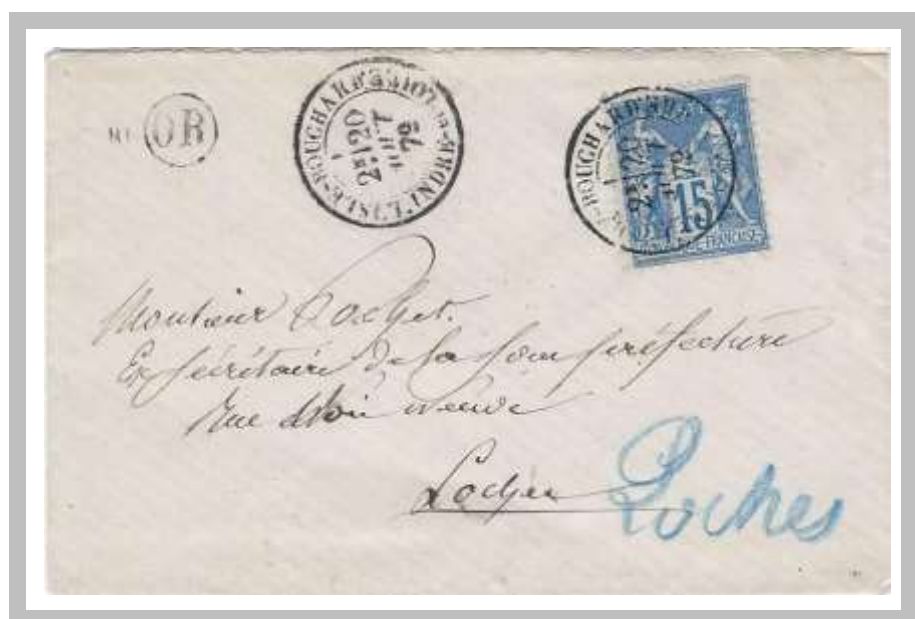 OR
L'ISLE-BOUCHARD INDRE-ET-LOIRE
1
2E 20
JUIL
79
BOUCHARD
1
2E 20
JUIL
79
15
FRANÇAISE
Monsieur Pochet.
Ex secrétaire de la Sous préfecture
Rue neuve
Loches
Loches